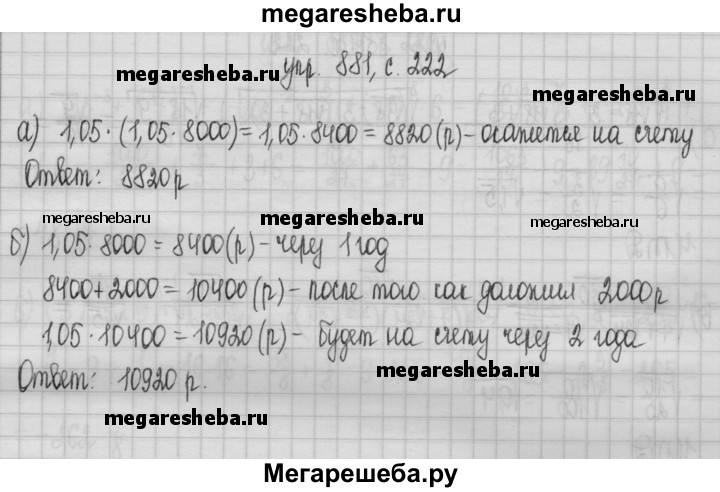 megaresheba.ru
упр. 881, с. 222
megaresheba.ru
megaresheba.ru
а) 1,05 · (1,05 · 8000) = 1,05 · 8400 = 8820 (р) - останется на счету
Ответ: 8820 р
megaresheba.ru megaresheba.ru megaresheba.ru
б) 1,05 · 8000 = 8400 (р) - через 1 год
8400 + 2000 = 10400 (р) - после того как доложил 2000 р
1,05 · 10400 = 10920 (р) - будет на счету через 2 года
megaresheba.ru
Ответ: 10920 р.
megaresheba.ru
Мегарешеба.ру